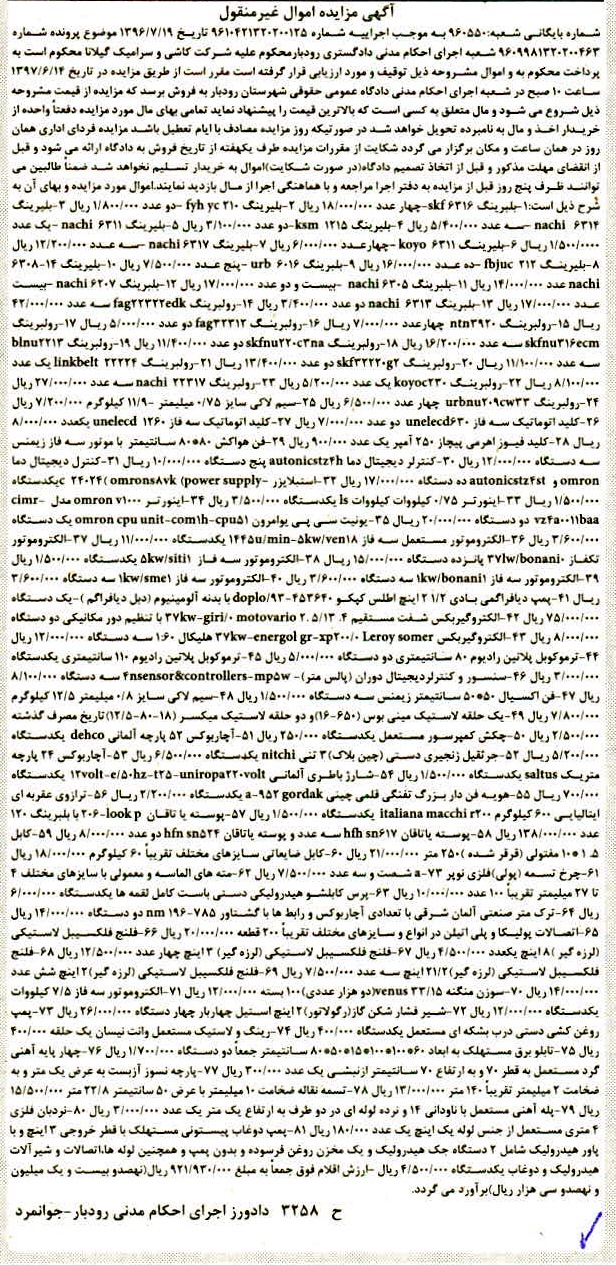 آگهی مزایده اموال غیرمنقول
شماره بایگانی شعبه: ۹۶۰۵۵۰ به موجب اجراییه شماره ۹۶۱۰۴۲۱۳۲۰۲۰۰۱۲۵ تاریخ ۱۳۹۶/۷/۱۹ موضوع پرونده شماره
۹۶۰۹۹۸۱۳۲۰۲۰۰۴۶۳ شعبه اجرای احکام مدنی دادگستری رودبار محکوم علیه شرکت کاشی و سرامیک گیلانا محکوم است به
پرداخت محکوم به و اموال مشروحه ذیل توقیف و مورد ارزیابی قرار گرفته است مقرر است از طریق مزایده در تاریخ ۱۳۹۷/۶/۱۴
ساعت ۱۰ صبح در شعبه اجرای احکام مدنی دادگاه عمومی حقوقی شهرستان رودبار به فروش برسد که مزایده از قیمت مشروحه
ذیل شروع می شود و مال متعلق به کسی است که بالاترین قیمت را پیشنهاد نماید تمامی بهای مال مورد مزایده دفعتاً واحده از
خریدار اخذ و مال به نامبرده تحویل خواهد شد در صورتیکه روز مزایده مصادف با ایام تعطیل باشد مزایده فردای اداری همان
روز در همان ساعت و مکان برگزار می گردد شکایت از مقررات مزایده ظرف یکهفته از تاریخ فروش به دادگاه ارائه می شود و قبل
از انقضای مهلت مذکور و قبل از اتخاذ تصمیم دادگاه(در صورت شکایت)اموال به خریدار تسلیم نخواهد شد ضمناً طالبین می
توانند ظرف پنج روز قبل از مزایده به دفتر اجرا مراجعه و با هماهنگی اجرا از مال بازدید نمایند.اموال مورد مزایده و بهای آن به
شرح ذیل است:۱-بلبرینگ skf ۶۳۱۶-چهار عدد ۱۸/۰۰۰/۰۰۰ ریال ۲-بلبرینگ fyh yc ۲۱۰ -دو عدد ۱/۸۰۰/۰۰۰ ریال ۳-بلبرینگ
nachi ۶۳۱۴ -سه عدد ۵/۴۰۰/۰۰۰ ریال ۴-بلبرینگ ksm ۱۲۱۵-دو عدد ۳/۱۰۰/۰۰۰ ریال ۵-بلبرینگ nachi ۶۳۱۱ -یک عدد
۱/۵۰۰/۰۰۰ ریال ۶-بلبرینگ koyo ۶۳۱۱ -چهارعدد ۶/۰۰۰/۰۰۰ ریال ۷-بلبرینگ nachi ۶۳۱۷ -سه عدد ۱۲/۲۰۰/۰۰۰ ریال
۸-بلبرینگ fbjuc ۲۱۲ -ده عدد ۱۶/۰۰۰/۰۰۰ ریال ۹-بلبرینگ urb ۶۰۱۶ -پنج عدد ۷/۵۰۰/۰۰۰ ریال ۱۰-بلبرینگ ۱۴-۶۳۰۸
nachi عدد ۱۴/۰۰۰/۰۰۰ ریال ۱۱-بلبرینگ nachi ۶۳۰۵ -بیست و دو عدد ۱۷/۰۰۰/۰۰۰ ریال ۱۲-بلبرینگ nachi ۶۲۰۷ -بیست
عدد ۱۷/۰۰۰/۰۰۰ ریال ۱۳-بلبرینگ nachi ۶۳۱۳ دو عدد ۳/۴۰۰/۰۰۰ ریال ۱۴-رولبرینگ fag۲۲۳۲۲edk سه عدد ۴۲/۰۰۰/۰۰۰
ریال ۱۵-رولبرینگ ntn۳۹۲۰ چهارعدد ۷/۰۰۰/۰۰۰ ریال ۱۶-رولبرینگ fag۲۲۳۱۲ دو عدد ۵/۰۰۰/۰۰۰ ریال ۱۷-رولبرینگ
skfnu۳۱۶ecm سه عدد ۱۶/۲۰۰/۰۰۰ ریال ۱۸-رولبرینگ skfnu۲۲۰c۳na دو عدد ۱۱/۴۰۰/۰۰۰ ریال ۱۹-رولبرینگ blnu۲۲۱۳
سه عدد ۱۱/۱۰۰/۰۰۰ ریال ۲۰-رولبرینگ skf۳۲۲۲۰g۲ دو عدد ۱۳/۴۰۰/۰۰۰ ریال ۲۱-رولبرینگ linkbelt ۲۲۲۲۴ یک عدد
۸/۱۰۰/۰۰۰ ریال ۲۲-رولبرینگ koyoc۲۳۰ یک عدد ۵/۲۰۰/۰۰۰ ریال ۲۳-رولبرینگ nachi ۲۲۳۱۷ سه عدد ۲۷/۰۰۰/۰۰۰ ریال
۲۴-رولبرینگ urbnu۲۰۹cw۳۳ چهار عدد ۶/۵۰۰/۰۰۰ ریال ۲۵-سیم لاکی سایز ۰/۷۵ میلیمتر -۱۱/۹ کیلوگرم ۷/۲۰۰/۰۰۰ ریال
۲۶-کلید اتوماتیک سه فاز unelecd۶۳۰ دو عدد ۷/۰۰۰/۰۰۰ ریال ۲۷-کلید اتوماتیک سه فاز unelecd ۱۲۶۰ یکعدد ۸/۰۰۰/۰۰۰
ریال ۲۸-کلید فیوز اهرمی پیچاز ۲۵۰ آمپر یک عدد ۹۰۰/۰۰۰ ریال ۲۹-فن هواکش ۸۰*۸۰ سانتیمتر با موتور سه فاز زیمنس
سه دستگاه ۱۲/۰۰۰/۰۰۰ ریال ۳۰-کنترلر دیجیتال دما autonicstz۴h پنج دستگاه ۱۰/۰۰۰/۰۰۰ ریال ۳۱-کنترل دیجیتال دما
omron و autonicstz۴st ده دستگاه ۱۷/۰۰۰/۰۰۰ ریال ۳۲-استبلایزر omrons۸vk (power supply- ۲۴۰۲۴ c یکدستگاه
۱/۵۰۰/۰۰۰ ریال ۳۳-اینورتر ۰/۷۵ کیلووات کیلووات ls یکدستگاه ۳/۵۰۰/۰۰۰ ریال ۳۴-اینورتر omron v۱۰۰۰ مدل cimr-
vz۴a۰۰۱۱baa دو دستگاه ۲۰/۰۰۰/۰۰۰ ریال ۳۵-یونیت سی پی یوامرون omron cpu unit-com۱h-cpu۵۱ یک دستگاه
۳/۶۰۰/۰۰۰ ریال ۳۶-الکتروموتور مستعمل سه فاز ۱۴۴۵u/min-۵kw/ven۱۸ یکدستگاه ۱۱/۰۰۰/۰۰۰ ریال ۳۷-الکتروموتور
تکفاز ۳۷lw/bonani۰ پانزده دستگاه ۱۵/۰۰۰/۰۰۰ ریال ۳۸-الکتروموتور سه فاز ۵kw/siti۱ یکدستگاه ۱/۵۰۰/۰۰۰ ریال
۳۹-الکتروموتور سه فاز ۱kw/bonani۱ سه دستگاه ۳/۶۰۰/۰۰۰ ریال ۴۰-الکتروموتور سه فاز ۱kw/sme۱ سه دستگاه ۳/۶۰۰/۰۰۰
ریال ۴۱-پمپ دیافراگمی بادی ۲ ۱/۲ اینچ اطلس کپکو doplo/۹۳-۴۵۳۶۴۰ با بدنه آلومینیوم (دبل دیافراگم)-یک دستگاه
۷۵/۰۰۰/۰۰۰ ریال ۴۲-الکتروگیربکس شفت مستقیم ۳۷kw-giri/۰ motovario ۲. ۵/۱۳. ۴ با تنظیم دور مکانیکی دو دستگاه
۸/۰۰۰/۰۰۰ ریال ۴۳-الکتروگیربکس ۳۷kw-energol gr-xp۲۰۰/۰ Leroy somer هلیکال ۱:۶۰ سه دستگاه ۱۲/۰۰۰/۰۰۰ ریال
۴۴-ترموکوپل پلاتین رادیوم ۸۰ سانتیمتری دو دستگاه ۵/۰۰۰/۰۰۰ ریال ۴۵-ترموکوپل پلاتین رادیوم ۱۱۰ سانتیمتری یکدستگاه
۳/۰۰۰/۰۰۰ ریال ۴۶-سنسور و کنترلر دیجیتال دوران (پالس متر)-۴nsensor&controllers-mp۵w سه دستگاه ۸/۱۰۰/۰۰۰
ریال ۴۷-فن اکسیال ۵۰*۵۰ سانتیمتر زیمنس سه دستگاه ۱/۵۰۰/۰۰۰ ریال ۴۸-سیم لاکی سایز ۰/۸ میلیمتر ۱۲/۵ کیلوگرم
۷/۸۰۰/۰۰۰ ریال ۴۹-یک حلقه لاستیک مینی بوس (۶۵۰-۱۶)و دو حلقه لاستیک میکسر (۱۸-۸۰-۱۲/۵)تاریخ مصرف گذشته
۲/۵۰۰/۰۰۰ ریال ۵۰-چکش کمپرسور مستعمل یکدستگاه ۲۵۰/۰۰۰ ریال ۵۱-آچاربوکس ۵۲ پارچه آلمانی dehco یکدستگاه
۵/۲۰۰/۰۰۰ ریال ۵۲-جرثقیل زنجیری دستی (چین بلاک)۳ تنی nitchi یکدستگاه ۶/۵۰۰/۰۰۰ ریال ۵۳-آچاربوکس ۲۴ پارچه
متریک saltus یکدستگاه ۱/۵۰۰/۰۰۰ ریال ۵۴-شارژ باطری آلمانی ۱۲volt-e/۵۰hz-t۲۵-uniropa۲۲۰volt یکدستگاه
۷۰۰/۰۰۰ ریال ۵۵-هویه فن دار بزرگ تفنگی قلمی چینی a-۹۵۲ gordak یکدستگاه ۲/۲۰۰/۰۰۰ ریال ۵۶-ترازوی عقربه ای
ایتالیایی ۶۰۰ کیلوگرم italiana macchi r۲۰۰ یکدستگاه ۱/۵۰۰/۰۰۰ ریال ۵۷-پوسته یا تاقان ۲۰۶-look p با بلبرینگ ۱۲۰
عدد ۱۳۸/۰۰۰/۰۰۰ ریال ۵۸-پوسته یاتاقان hfh sn۶۱۷ سه عدد و پوسته یاتاقان hfn sn۵۲۴ دو عدد ۸/۰۰۰/۰۰۰ ریال ۵۹-کابل
۱.۵*۱۰ مفتولی (قرقر شده )۲۵۰ متر ۲۱/۰۰۰/۰۰۰ ریال ۶۰-کابل ضایعاتی سایزهای مختلف تقریباً ۶۰ کیلوگرم ۱۸/۰۰۰/۰۰۰ ریال
۶۱-چرخ تسمه (پولی)فلزی نوپر a-۷۳ شصت و سه عدد ۷/۵۰۰/۰۰۰ ریال ۶۲-مته های الماسه و معمولی با سایزهای مختلف ۴
تا ۲۷ میلیمتر تقریباً ۱۰۰ عدد ۱۰/۰۰۰/۰۰۰ ریال ۶۳-پرس کابلشو هیدرولیکی دستی باست کامل لقمه ها یکدستگاه ۶/۰۰۰/۰۰۰
ریال ۶۴-ترک متر صنعتی آلمان شرقی با تعدادی آچاربوکس و رابط ها با گشتاور nm ۱۹۶-۷۸۵ دو دستگاه ۱۴/۰۰۰/۰۰۰ ریال
۶۵-اتصالات پولیکا و پلی اتیلن در انواع و سایزهای مختلف تقریباً ۲۰۰ قطعه ۲۰/۰۰۰/۰۰۰ ریال ۶۶-فلنج فلکسیبل لاستیکی
(لرزه گیر )۸ اینچ یکعدد ۴/۵۰۰/۰۰۰ ریال ۶۷-فلنج فلکسیبل لاستیکی (لرزه گیر) ۳ اینچ چهار عدد ۱۲/۵۰۰/۰۰۰ ریال ۶۸-فلنج
فلکسیبل لاستیکی (لرزه گیر)۲۱/۲ اینچ سه عدد ۷/۵۰۰/۰۰۰ ریال ۶۹-فلنج فلکسیبل لاستیکی (لرزه گیر)۲ اینچ شش عدد
۱۴/۰۰۰/۰۰۰ ریال ۷۰-سوزن منگنه venus ۳۳/۱۵(دو هزار عددی)۱۰۰ بسته ۱۲/۰۰۰/۰۰۰ ریال ۷۱-الکتروموتور سه فاز ۷/۵ کیلووات
یکدستگاه ۱۲/۰۰۰/۰۰۰ ریال ۷۲-شیر فشار شکن گاز(رگولاتور)۲ اینچ استیل چهاربار چهار دستگاه ۲۶/۰۰۰/۰۰۰ ریال ۷۳-پمپ
روغن کشی دستی درب بشکه ای مستعمل یکدستگاه ۴۰۰/۰۰۰ ریال ۷۴-رینگ و لاستیک مستعمل وانت نیسان یک حلقه ۴۰۰/۰۰۰
ریال ۷۵-تابلو برق مستهلک به ابعاد ۶۰*۱۰۰*۱۰۰*۱۵*۵۰*۸۰ سانتیمتر جمعاً دو دستگاه ۱/۷۰۰/۰۰۰ ریال ۷۶-چهار پایه آهنی
گرد مستعمل به قطر ۷۰ و به ارتفاع ۷۰ سانتیمتر ازنبشی یک عدد ۳۰۰/۰۰۰ ریال ۷۷-پارچه نسوز آزبست به عرض یک متر و به
ضخامت ۲ میلیمتر تقریباً ۱۴۰ متر ۱۳/۰۰۰/۰۰۰ ریال ۷۸-تسمه نقاله ضخامت ۱۰ میلیمتر با عرض ۵۰ سانتیمتر ۲۲/۸ متر ۱۵/۵۰۰/۰۰۰
ریال ۷۹-پله آهنی مستعمل با ناودانی ۱۴ و نرده لوله ای در دو طرف به ارتفاع یک متر یک عدد ۳/۰۰۰/۰۰۰ ریال ۸۰-نردبان فلزی
۴ متری مستعمل از جنس لوله یک اینچ یک عدد ۱۸۰/۰۰۰ ریال ۸۱-پمپ دوغاب پیستونی مستهلک با قطر خروجی ۳ اینچ و با
پاور هیدرولیک شامل ۲ دستگاه جک هیدرولیک و یک مخزن روغن فرسوده و بدون پمپ و همچنین لوله ها،اتصالات و شیرآلات
هیدرولیک و دوغاب یکدستگاه ۴/۵۰۰/۰۰۰ ریال -ارزش اقلام فوق جمعاً به مبلغ ۹۲۱/۹۳۰/۰۰۰ ریال(نهصدو بیست و یک میلیون
و نهصدو سی هزار ریال)برآورد می گردد.
ح ۳۲۵۸ دادورز اجرای احکام مدنی رودبار-جوانمرد